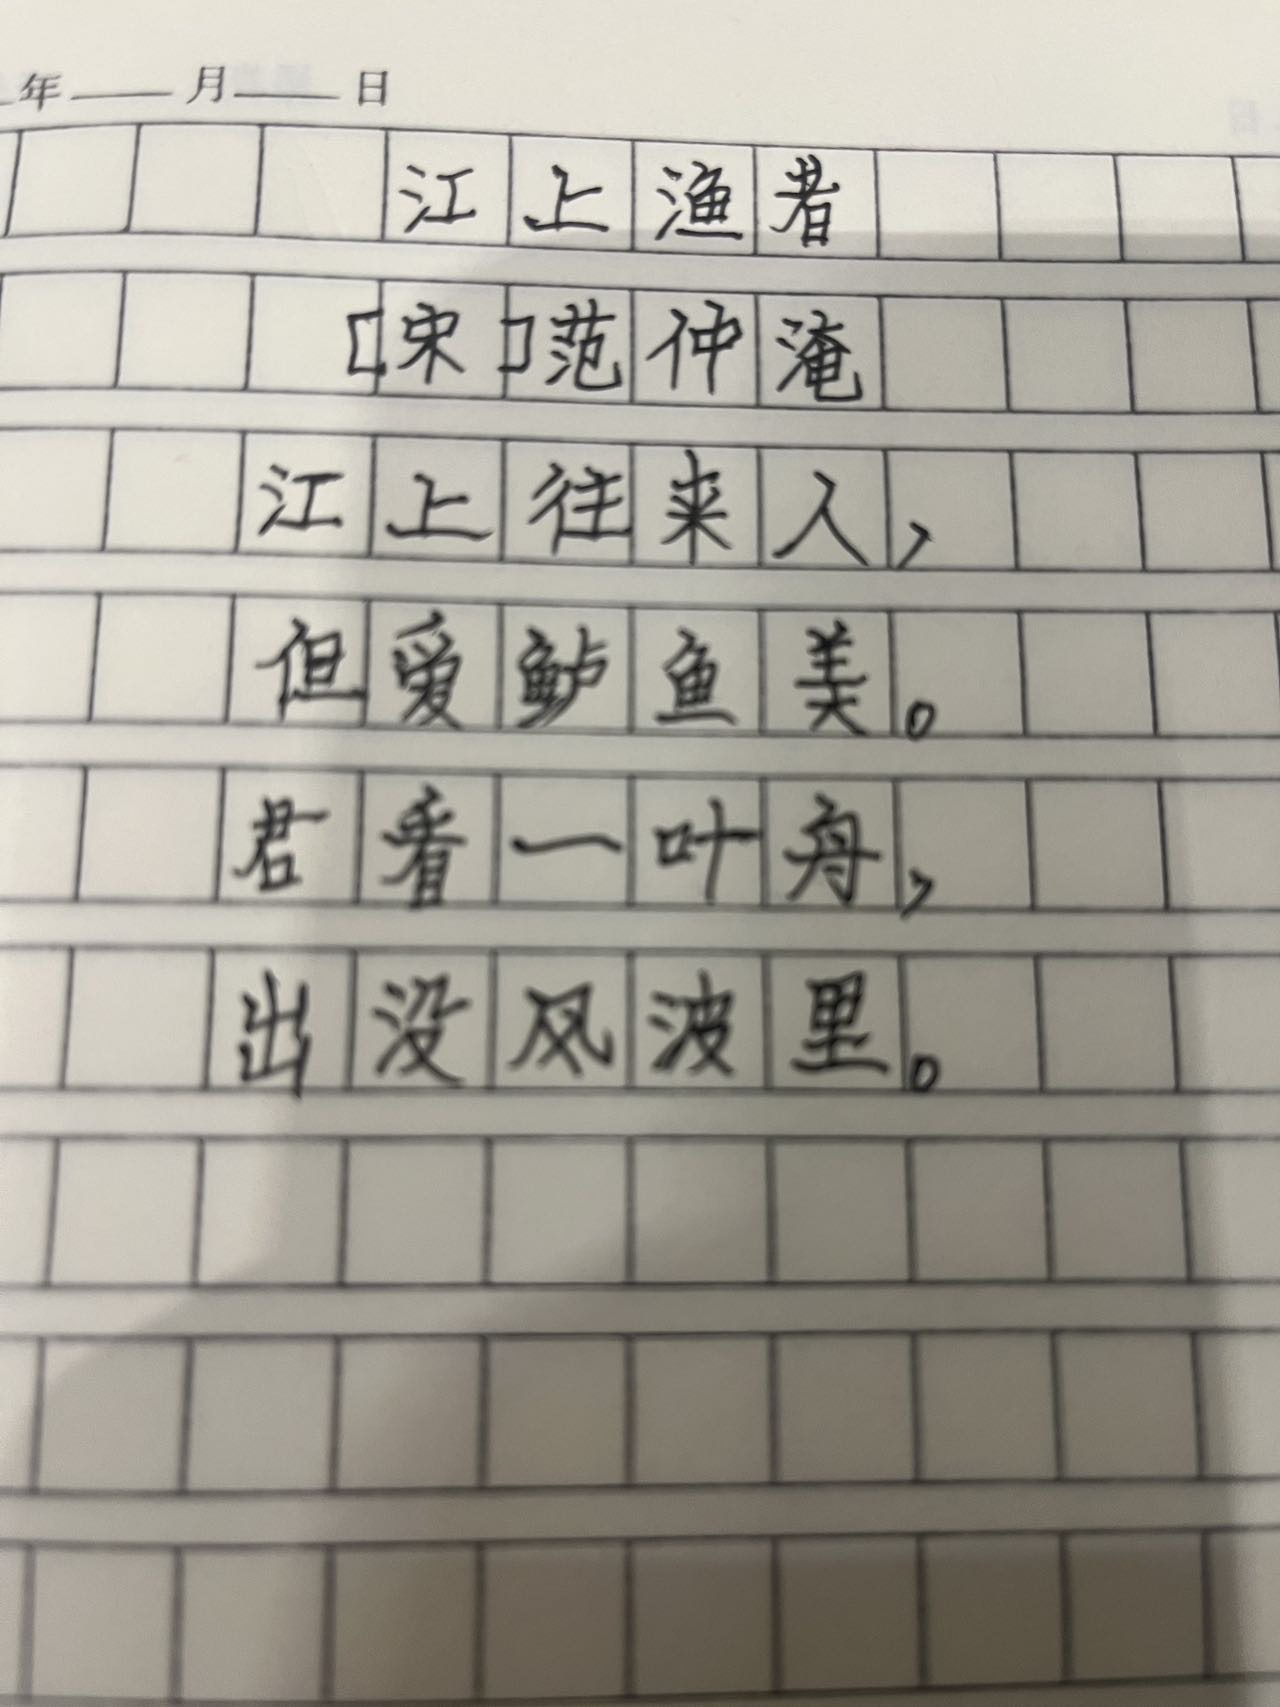 年 月 日
江上渔者
[宋]范仲淹
江上往来人,
但爱鲈鱼美。
君看一叶舟,
出没风波里。